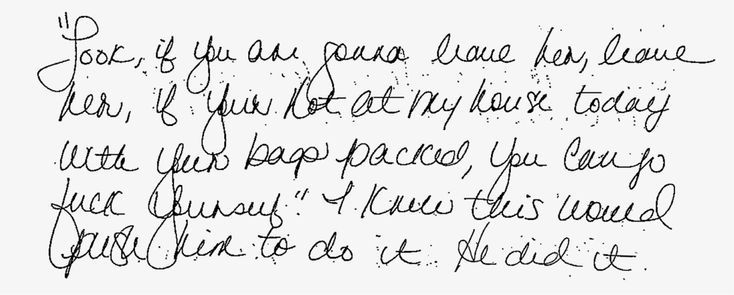 "Look, if you are gonna leave her, leave
her, if your not at my house today
with your bags packed, you can go
fuck yourself." I knew this would
push him to do it. He did it.